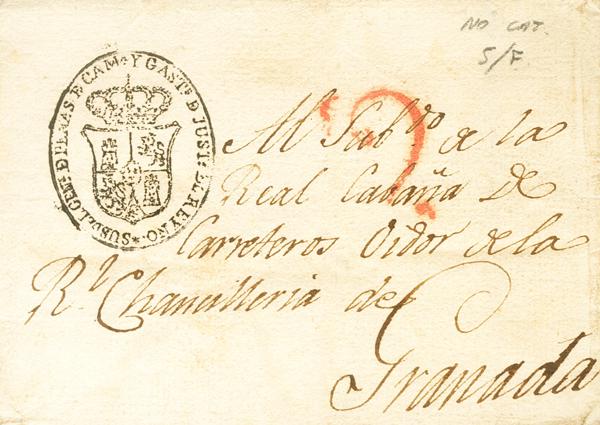 NO CAT.
S/F.
*SUBD.L GEN.L D PENAS D CAM.A Y GAST.S D JUST.A D.L REYNO.
Al Sub.do de la
Real Cabaña De
Carreteros Oidor de la
R.l Chancilleria de
Granada